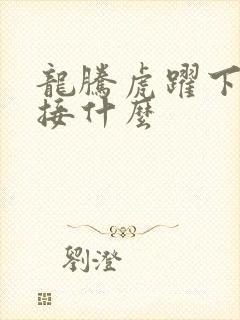 龍騰虎躍下
接什麼
劉澄